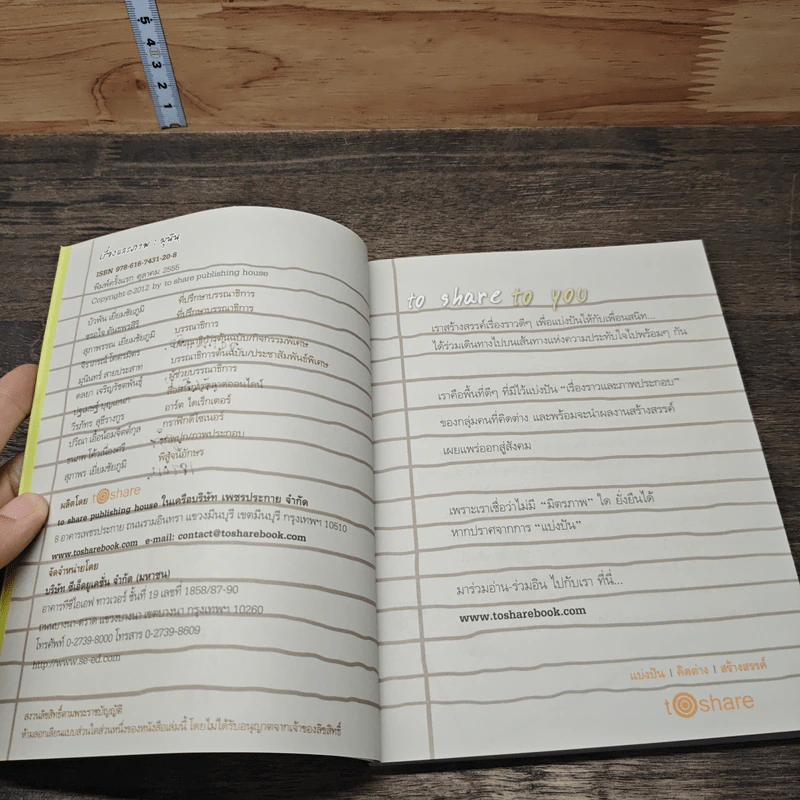 5 4 3 2 1
เรื่องและภาพ : มุนิน
ISBN 978-616-7431-20-8
พิมพ์ครั้งแรก ตุลาคม 2555
Copyright ©2012 by to share publishing house
บัวพัน เยี่ยมชัยภูมิ ที่ปรึกษาบรรณาธิการ
ที่ปรึกษาบรรณาธิการ
สุภาพรรณ เยี่ยมชัยภูมิ บรรณาธิการ
บรรณาธิการต้นฉบับ/กิจกรรมพิเศษ
มุนินทร์ สายประสาท บรรณาธิการต้นฉบับ/ประชาสัมพันธ์พิเศษ
ดลยา เจริญรัชตพันธุ์ ผู้ช่วยบรรณาธิการ
วีรภัทร สุธีรางกูร อาร์ต ไดเร็กเตอร์
ปวีณา เอื้อน้อมจิตต์กุล กราฟิกดีไซเนอร์
สุภาพร เยี่ยมชัยภูมิ พิสูจน์อักษร
ผลิตโดย to share
to share publishing house ในเครือบริษัท เพชรประกาย จำกัด
8 อาคารเพชรประกาย ถนนรามอินทรา แขวงมีนบุรี เขตมีนบุรี กรุงเทพฯ 10510
www.tosharebook.com e-mail: contact@tosharebook.com
จัดจำหน่ายโดย
บริษัท ซีเอ็ดยูเคชั่น จำกัด (มหาชน)
อาคารทีซีไอเอฟ ทาวเวอร์ ชั้นที่ 19 เลขที่ 1858/87-90
ถนนบางนา-ตราด แขวงบางนา เขตบางนา กรุงเทพฯ 10260
โทรศัพท์ 0-2739-8000 โทรสาร 0-2739-8609
http://www.se-ed.com
สงวนลิขสิทธิ์ตามพระราชบัญญัติ
ห้ามลอกเลียนแบบส่วนใดส่วนหนึ่งของหนังสือเล่มนี้ โดยไม่ได้รับอนุญาตจากเจ้าของลิขสิทธิ์
to share to you
เราสร้างสรรค์เรื่องราวดีๆ เพื่อแบ่งปันให้กับเพื่อนสนิท...
ได้ร่วมเดินทางไปบนเส้นทางแห่งความประทับใจไปพร้อมๆ กัน
เราคือพื้นที่ดีๆ ที่มีไว้แบ่งปัน “เรื่องราวและภาพประกอบ”
ของกลุ่มคนที่คิดต่าง และพร้อมจะนำผลงานสร้างสรรค์
เผยแพร่ออกสู่สังคม
เพราะเราเชื่อว่าไม่มี “มิตรภาพ” ใด ยั่งยืนได้
หากปราศจากการ “แบ่งปัน”
มาร่วมอ่าน-ร่วมอิน ไปกับเรา ที่นี่...
www.tosharebook.com
แบ่งปัน | คิดต่าง | สร้างสรรค์
to share